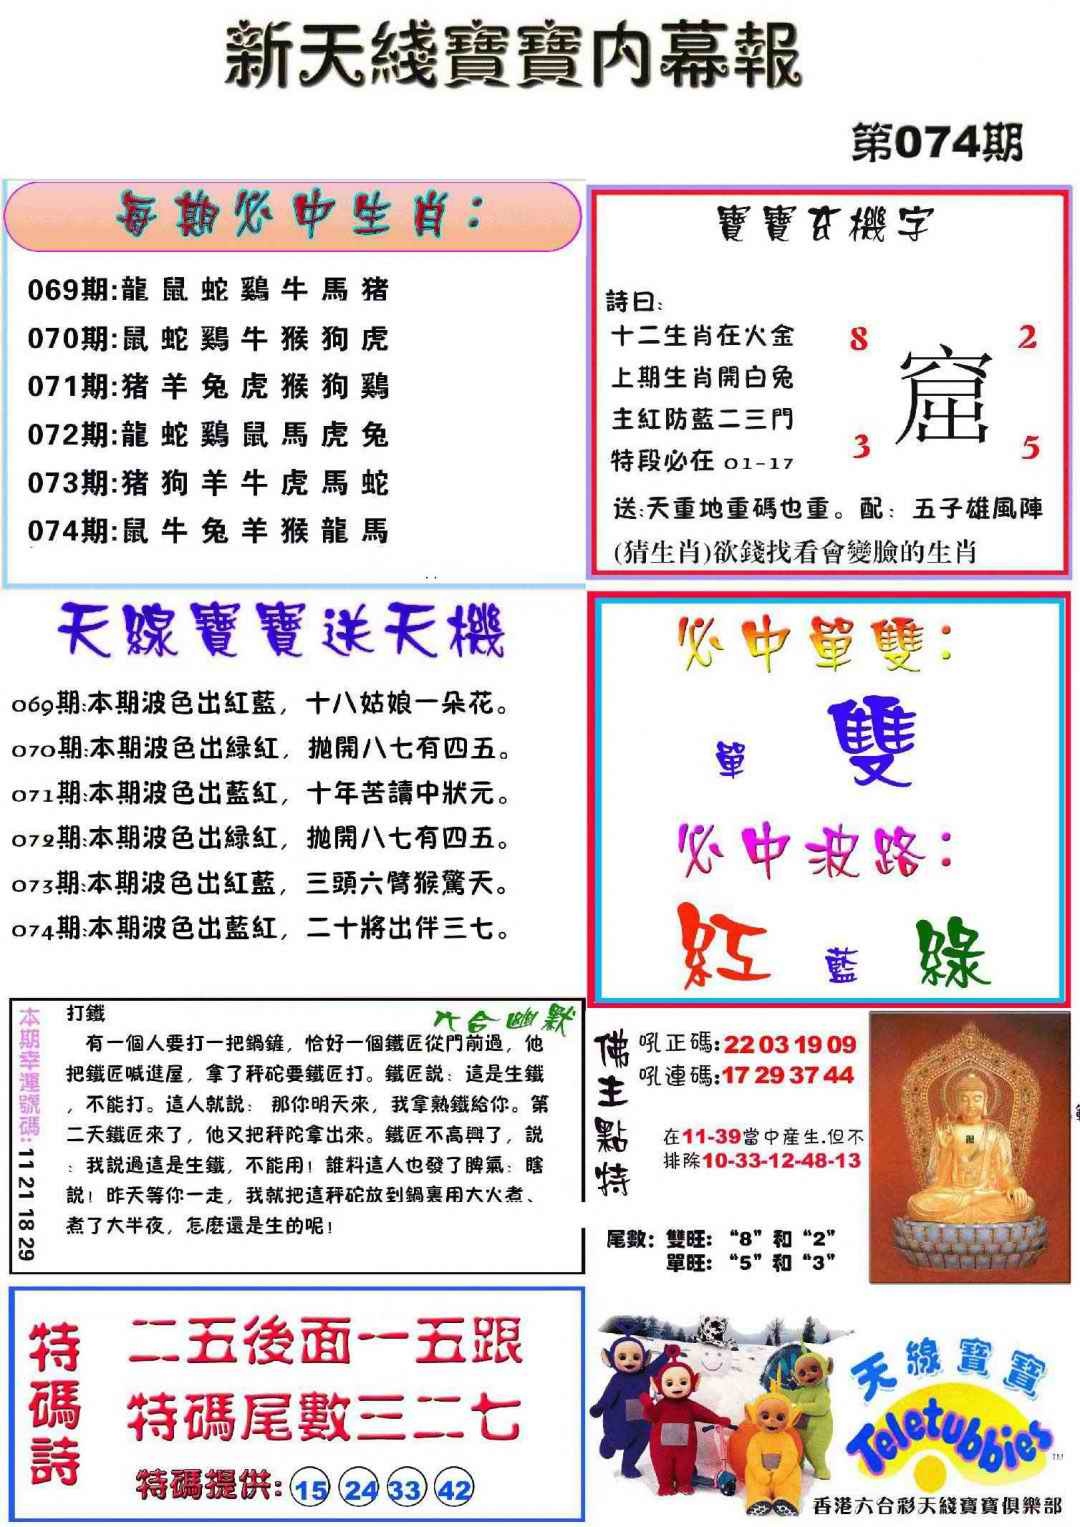 新天綫寶寶内幕報
第074期
每期必中生肖：
069期:龍 鼠 蛇 鷄 牛 馬 猪
070期:鼠 蛇 鷄 牛 猴 狗 虎
071期:猪 羊 兔 虎 猴 狗 鷄
072期:龍 蛇 鷄 鼠 馬 虎 兔
073期:猪 狗 羊 牛 虎 馬 蛇
074期:鼠 牛 兔 羊 猴 龍 馬
寶寶玄機字
詩曰:
十二生肖在火金
上期生肖開白兔
主紅防藍二三門
特段必在 01-17
8 2
窟
3 5
送:天重地重碼也重。配：五子雄風陣
(猜生肖)欲錢找看會變臉的生肖
天線寶寶送天機
069期:本期波色出紅藍，十八姑娘一朵花。
070期:本期波色出緑紅，拋開八七有四五。
071期:本期波色出藍紅，十年苦讀中狀元。
072期:本期波色出緑紅，拋開八七有四五。
073期:本期波色出紅藍，三頭六臂猴驚天。
074期:本期波色出藍紅，二十將出伴三七。
必中單雙：
單 雙
必中波路：
紅 藍 綠
本期幸運號碼:11 21 18 29
六合幽默
打鐵
有一個人要打一把鍋鏟，恰好一個鐵匠從門前過，他
把鐵匠喊進屋，拿了秤砣要鐵匠打。鐵匠説：這是生鐵
，不能打。這人就説： 那你明天來，我拿熟鐵給你。第
二天鐵匠來了，他又把秤陀拿出來。鐵匠不高興了，説
：我説過這是生鐵，不能用！誰料這人也發了脾氣：瞎
説！昨天等你一走，我就把這秤砣放到鍋裏用大火煮、
煮了大半夜，怎麽還是生的呢！
佛主點特
吼正碼:22 03 19 09
吼連碼:17 29 37 44
在11-39當中産生.但不
排除10-33-12-48-13
尾數：雙旺：“8”和“2”
單旺：“5”和“3”
特碼詩
二五後面一五跟
特碼尾數三二七
特碼提供: 15 24 33 42
天線寶寶
Teletubbies™
香港六合彩天綫寶寶俱樂部